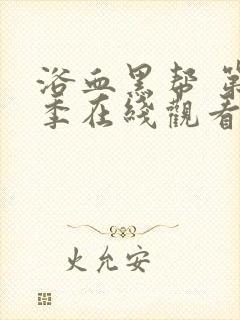 浴血黑帮 第
季在线觀看
火允安